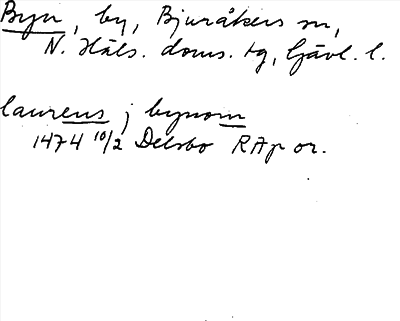 Byn, by, Bjuråkers sn,
N. Häls. doms. tg, Gävl. l.
laurens j bynom
1474 10/2 Delsbo RAp or.